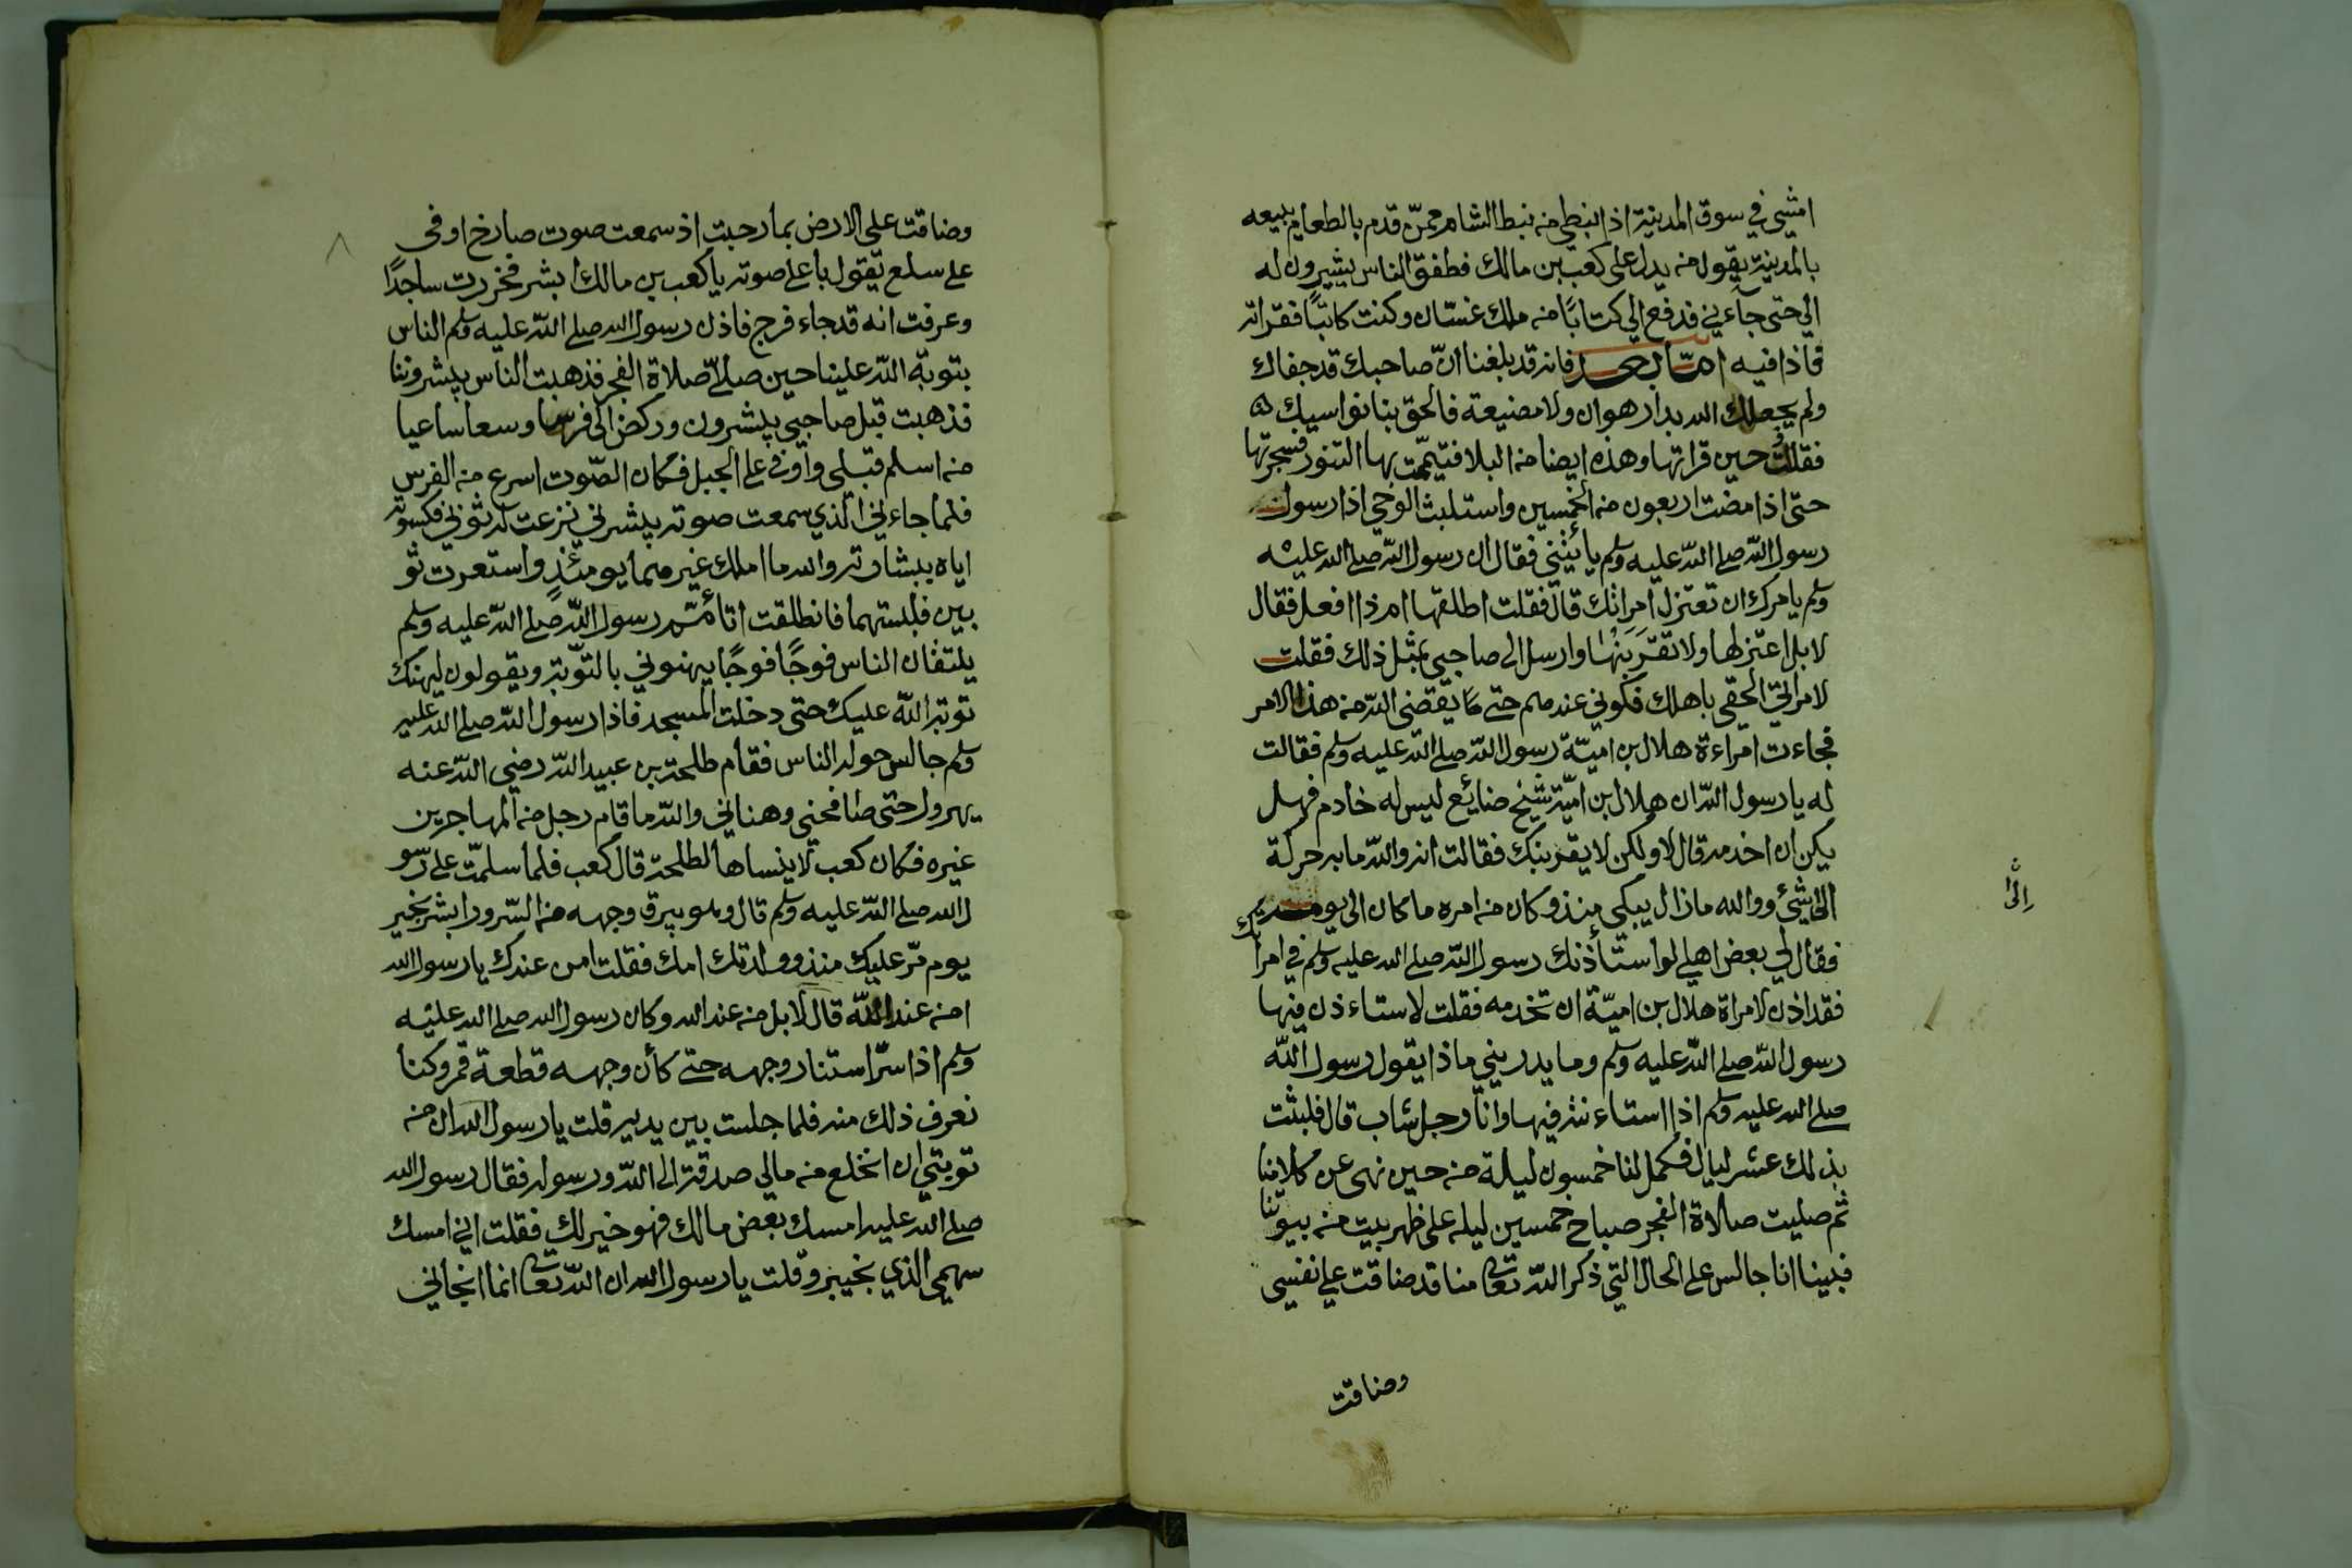 امشي في سوق المدينة اذا نبطي من نبط الشام ممن قدم بالطعام يبيعه
بالمدينة يقول من يدل على كعب بن مالك فطفق الناس يشيرون له
الي حتى جآءني فدفع الي كتابًا من ملك غسّان وكنت كاتبًا فقراته
فاذا فيه امّا بعد فانه قد بلغنا انّ صاحبك قد جفاك
ولم يجعلك الله بدار هوان ولا مضيعة فالحق بنا نواسيك
فقلت حين قراتها وهذه ايضا من البلا فتيممت بها التنور فسجرتها
حتى اذا مضت اربعون من الخمسين واستلبث الوحي اذا رسول
رسول الله صلى الله عليه وسلم يأتيني فقال ان رسول الله صلى الله عليه
وسلم يامرك ان تعتزل امراتك قال فقلت اطلقها ام ذا افعل فقال
لا بل اعتزلها ولا تقربنها وارسل الى صاحبي بمثل ذلك فقلت
لامراتي الحقي باهلك فكوني عندهم حتى يقضي الله من هذا الامر
فجاءت امراءة هلال بن اميّة رسول الله صلى الله عليه وسلم فقالت
له يا رسول الله ان هلال بن اميّة شيخ ضايع ليس له خادم فهل
يكن ان اخدمه قال لا ولكن لا يقربنك فقالت انه والله ما به حركة
الى شيء ووالله ما زال يبكي منذ وكان من امره ما كان الى يومه
فقال لي بعض اهلي لو استأذنك رسول الله صلى الله عليه وسلم في امرأتك
فقد اذن لامراة هلال بن اميّة ان تخدمه فقلت لا استاءذن فيها
رسول الله صلى الله عليه وسلم وما يدريني ماذا يقول رسول الله
صلى الله عليه وسلم اذا استاءنته فيها وانا رجل شاب قال فلبثت
بذلك عشر ليال فكمل لنا خمسون ليلة من حين نهى عن كلامنا
ثم صليت صلاة الفجر صباح خمسين ليله على ظهر بيت من بيوتنا
فبينا انا جالس على الحال التي ذكر الله تعالى منا قد ضاقت علي نفسي
وضاقت
الى
وضاقت علي الارض بما رحبت اذ سمعت صوت صارخ اوفى
على سلع يقول باعلى صوته يا كعب بن مالك ابشر فخررت ساجدًا
وعرفت انه قد جاء فرج فاذن رسول الله صلى الله عليه وسلم الناس
بتوبة الله علينا حين صلاّ صلاة الفجر فذهبت الناس يبشروننا
فذهبت قبل صاحبي يبشرون وركض الي فرسا وسعا ساعيا
من اسلم قبلي واوفى على الجبل فكان الصّوت اسرع من الفرس
فلما جاءني الذي سمعت صوته يبشرني نزعت له ثوبي فكسوته
اياه ببشارته والله ما املك غيرهما يومئذٍ واستعرت ثو
بين فلبستهما فانطلقت اتأمّم رسول الله صلى الله عليه وسلم
يلتقان الناس فوجًا فوجًا يهنوني بالتّوبة ويقولون ليهنك
توبة الله عليك حتى دخلت المسجد فاذا رسول الله صلى الله عليه
وسلم جالس حوله الناس فقام طلحة بن عبيد الله رضي الله عنه
يهرول حتى صافحني وهناني والله ما قام رجل من المهاجرين
غيره فكان كعب لا ينساها لطلحة قال كعب فلما سلمت على رسو
ل الله صلى الله عليه وسلم قال وهو يبرق وجهه من السّرور ابشر بخير
يوم مرّ عليك منذ وولدتك امك فقلت امن عندك يا رسول الله
امن عند الله قال لا بل من عند الله وكان رسول الله صلى الله عليه
وسلم اذا سرّ استنار وجهه حتى كأن وجهه قطعة قمر وكنا
نعرف ذلك منه فلما جلست بين يديه قلت يا رسول الله ان من
توبتي ان انخلع من مالي صدقة الى الله ورسوله فقال رسول الله
صلى الله عليه امسك بعض مالك فهو خير لك فقلت اني امسك
سهمي الذي بخيبر وقلت يا رسول الله ان الله تعالى انما انجاني